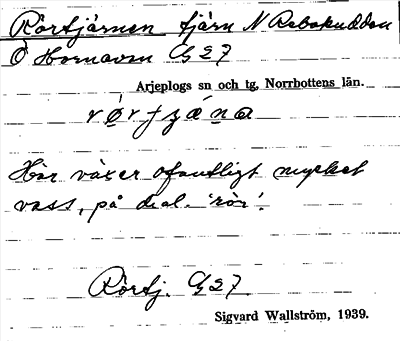 Rörtjärnen tjärn N Rebakudden
Ö Hornavan G 27
Arjeplogs sn och tg, Norrbottens län.
Här växer ofantligt mycket
vass, på dial. 'rör'.
Rörtj. G 27
Sigvard Wallström, 1939.